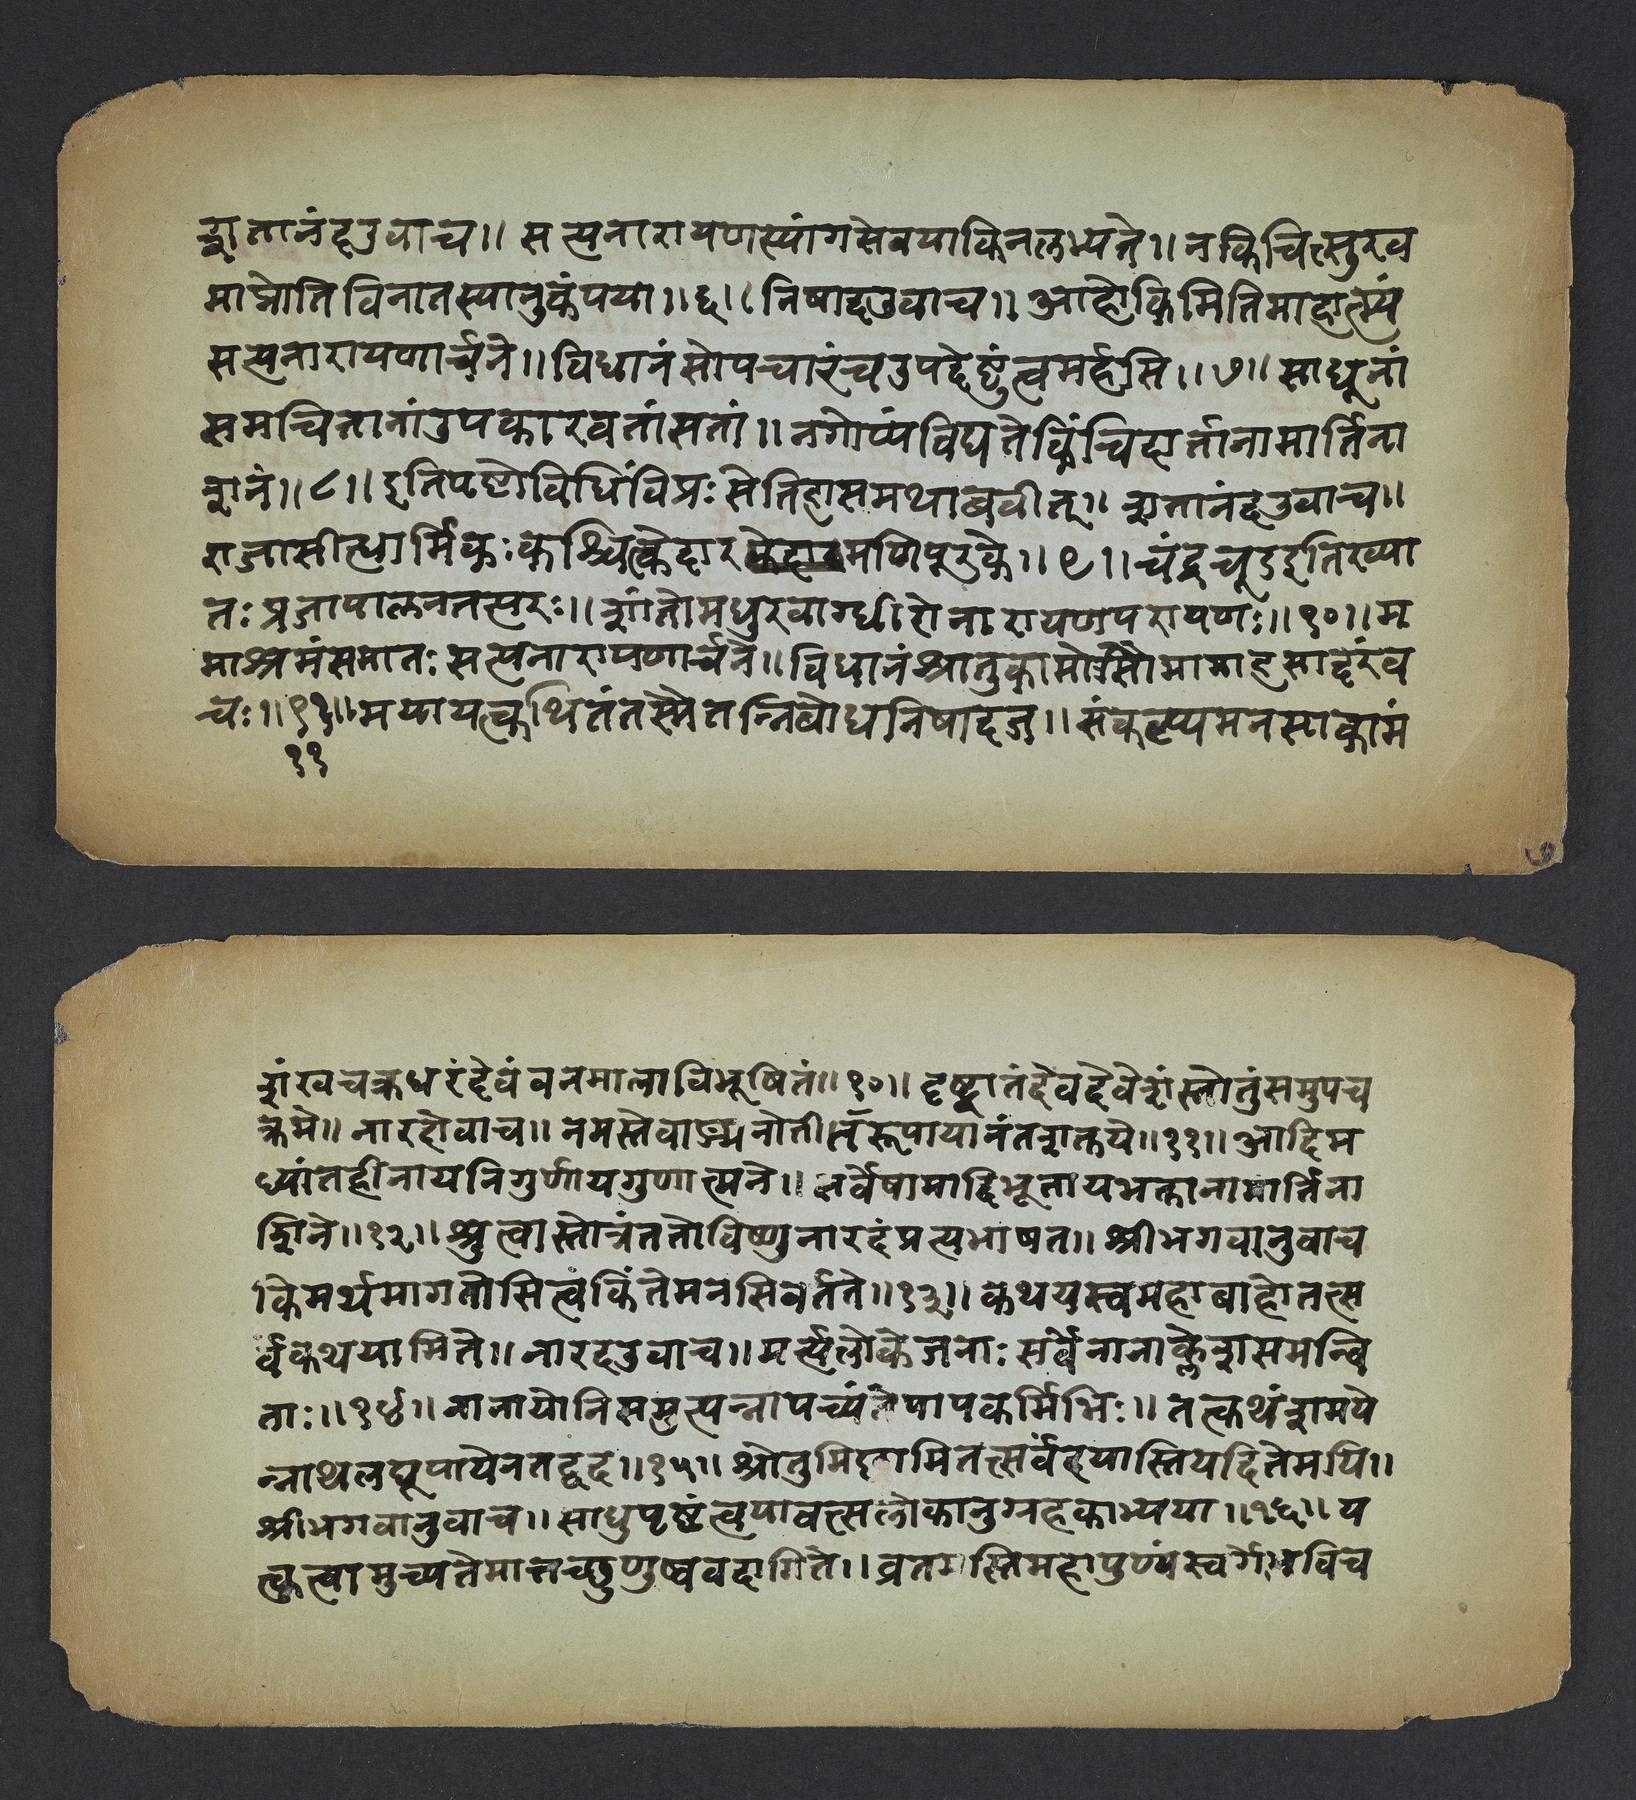 शतानंदउवाच॥ सत्यनारायणस्यांगसेवयाकिंनलभ्यते॥ नकिंचित्सुख
माप्नोतिविनातस्यानुकंपया॥६॥ निषादउवाच॥ आहोकिमितिमाहात्म्यं
सत्यनारायणार्चने॥ विधानंसोपचारंचउपदेष्टुंत्वमर्हसि॥७॥ साधूनां
समचित्तानांउपकारवतांसतां॥ नगोप्यंविद्यतेकिंचिदार्त्तानामार्तिना
शनं॥८॥ इतिपृष्टोविधिंविप्रः सेतिहासमथाब्रवीत्॥ शतानंदउवाच॥
राजासीत्धार्मिकः कश्चित्केदारमणिपूरुके॥९॥ चंद्रचूडइतिख्या
तः प्रजापालनतत्परः॥ शांतोमधुरवाग्धीरोनारायणपरायणः॥१०॥ म
माश्रमंसमातः सत्यनारायणार्चने॥ विधानंश्रोतुकामोसौमामाहसादरंव
चः॥११॥ मयायत्कथितंतस्मैतन्निबोधनिषादज॥ संकल्प्यमनसाकामं
११
७
शंखचक्रधरंदेवंवनमालाविभूषितं॥१०॥ दृष्ट्वातंदेवदेवेशंस्तोतुंसमुपच
क्रमे॥ नारदोवाच॥ नमस्तेवाङ्मनोतीतरूपायानंतशक्तये॥११॥ आदिम
ध्यांतहीनायनिर्गुणायगुणात्मने॥ सर्वेषामादिभूतायभक्तानामार्त्तिना
शिने॥१२॥ श्रुत्वास्तोत्रंततोविष्णुनारदंप्रत्यभाषत॥ श्रीभगवानुवाच
किमर्थमागतोसित्वंकिंतेमनसिवर्तते॥१३॥ कथयस्वमहाबाहोतत्स
र्वंकथयामिते॥ नारदउवाच॥ मर्त्यलोकेजनाः सर्वेनानाक्लेशसमन्वि
ताः॥१४॥ नानायोनिसमुत्पन्नापच्यंतेपापकर्मिभिः॥ तत्कथंशमये
न्नाथलघूपायेनतद्वद॥१५॥ श्रोतुमिछामितत्सर्वंदयास्तियदितेमयि॥
श्रीभगवानुवाच॥ साधुपृष्टंत्वयावत्सलोकानुग्रहकाम्यया॥१६॥ य
त्कृत्वामुच्यतेमोत्तच्छृणुष्ववदामिते॥ व्रतमस्तिमहोपुण्यंस्वर्गे विच